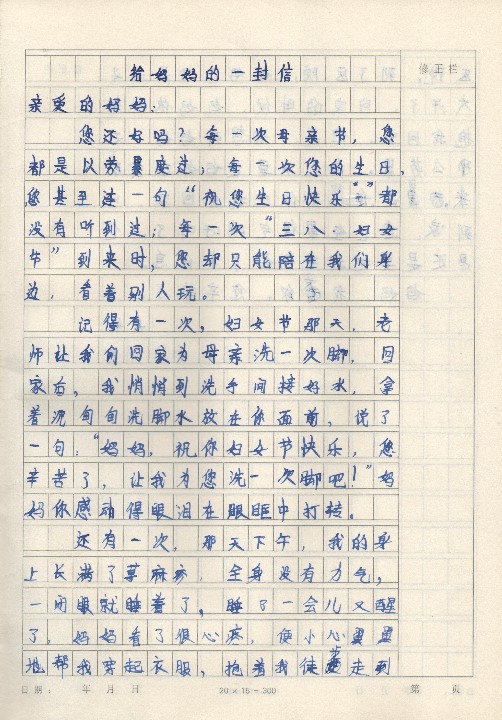 给妈妈的一封信
修正栏
亲爱的妈妈:
您还好吗?每一次母亲节,您
都是以劳累度过;每一次您的生日,
您甚至连一句“祝您生日快乐”都
没有听到过;每一次“三八·妇女
节”到来时,您却只能陪在我们身
边,看着别人玩。
记得有一次,妇女节那天,老
师让我们回家为母亲洗一次脚,回
家后,我悄悄到洗手间接好水,拿
着沉甸甸洗脚水放在你面前,说了
一句:“妈妈,祝你妇女节快乐,您
辛苦了,让我为您洗一次脚吧!”妈
妈你感动得眼泪在眼眶中打转。
还有一次,那天下午,我的身
上长满了荨麻疹,全身没有力气,
一闭眼就睡着了,睡了一会儿又醒
了,妈妈看了很心疼,便小心翼翼
地帮我穿起衣服,抱着我徒步走到
日期: 年 月 日 20×15=300 第 页